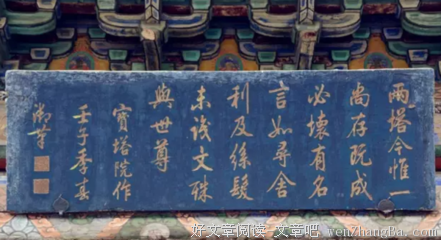 兩塔今惟一
尚存既成
必壞有名
言如尋舍
利及絲髮
未識文殊
與世尊
寶塔院作
壬子季春
御筆
好文章阅读-文章吧 wenzhangba.com